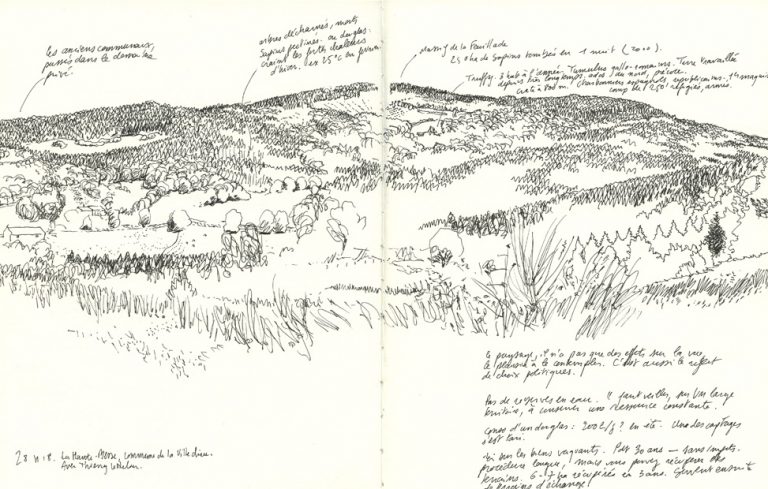 les anciens communaux,
passés dans le domaine
privé.
arbres décharnés, morts
Sapins pectinés ou douglas.
craignant les fortes chaleurs
d'hiver. (ex 25°c en février
Massif de la Feuillade
250 ha de sapins tombés en 1 nuit (2000).
Truffy. 3 hab à l'année. Tumulus gallo-romains. Terre travaillée
depuis très longtemps. ados du nord,
Charbonniers espagnols républicains. 
camp de 250 réfugiés, armés.
Le paysage, il n'a pas que des effets sur la vue,
le plaisir à le contempler. C'est aussi le reflet
de choix politiques.
Pas de réserves en eau. Il faut veiller, sur un large
territoire, à conserver une ressource constante.
Conso d'un douglas : 200 L/j ? en été. Un des captages
s'est tari.
Loi sur les biens vacants. Post 30 ans — sans impôts.
procédure longue, mais vous pouvez récupérer des
terrains. 6-7 ha récupérés en 3 ans. Servent ensuite
de terrains d'échange
La Haute-Brosse, commune de la Villedieu.
Avec Thierry